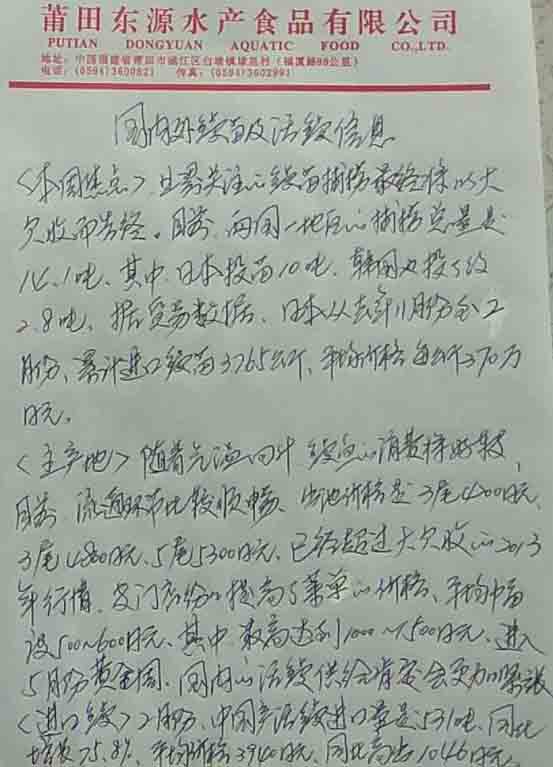 莆田东源水产食品有限公司
PUTIAN DONGYUAN AQUATIC FOOD CO.,LTD.
地址：中国福建省莆田市涵江区白塘镇 村（福厦路99公里）
电话：(0594)360082) 传真：(0594)3602991
国内外鳗苗及活鳗信息
<本周焦点> 业界关注的鳗苗捕捞最终将以大
欠收而告终。目前，两国一地区的捕捞总量是
14.1吨、其中日本投苗10吨、韩国也投了约
2.8吨、据贸易数据、日本从去年11月份至2
月份、累计进口鳗苗3765公斤、平均价格每公斤270万
日元。
<主产地> 随着气温回升 鳗鱼的消费转好转,
目前 流通环节比较顺畅、出池价格是3尾4200日元、
3尾4800日元、5尾5300日元、已经超过大欠收的2013
年行情、专门店纷纷提高了菜单的价格、平均幅
设500~600日元、其中最高达到1000~1500日元、进入
5月份黄金周、国内的活鳗供给肯定会更加紧张
<进口鳗> 2月份、中国产活鳗进口量是531吨、同比
增长75.8%、平均价格3940日元、同比高出1046日元、